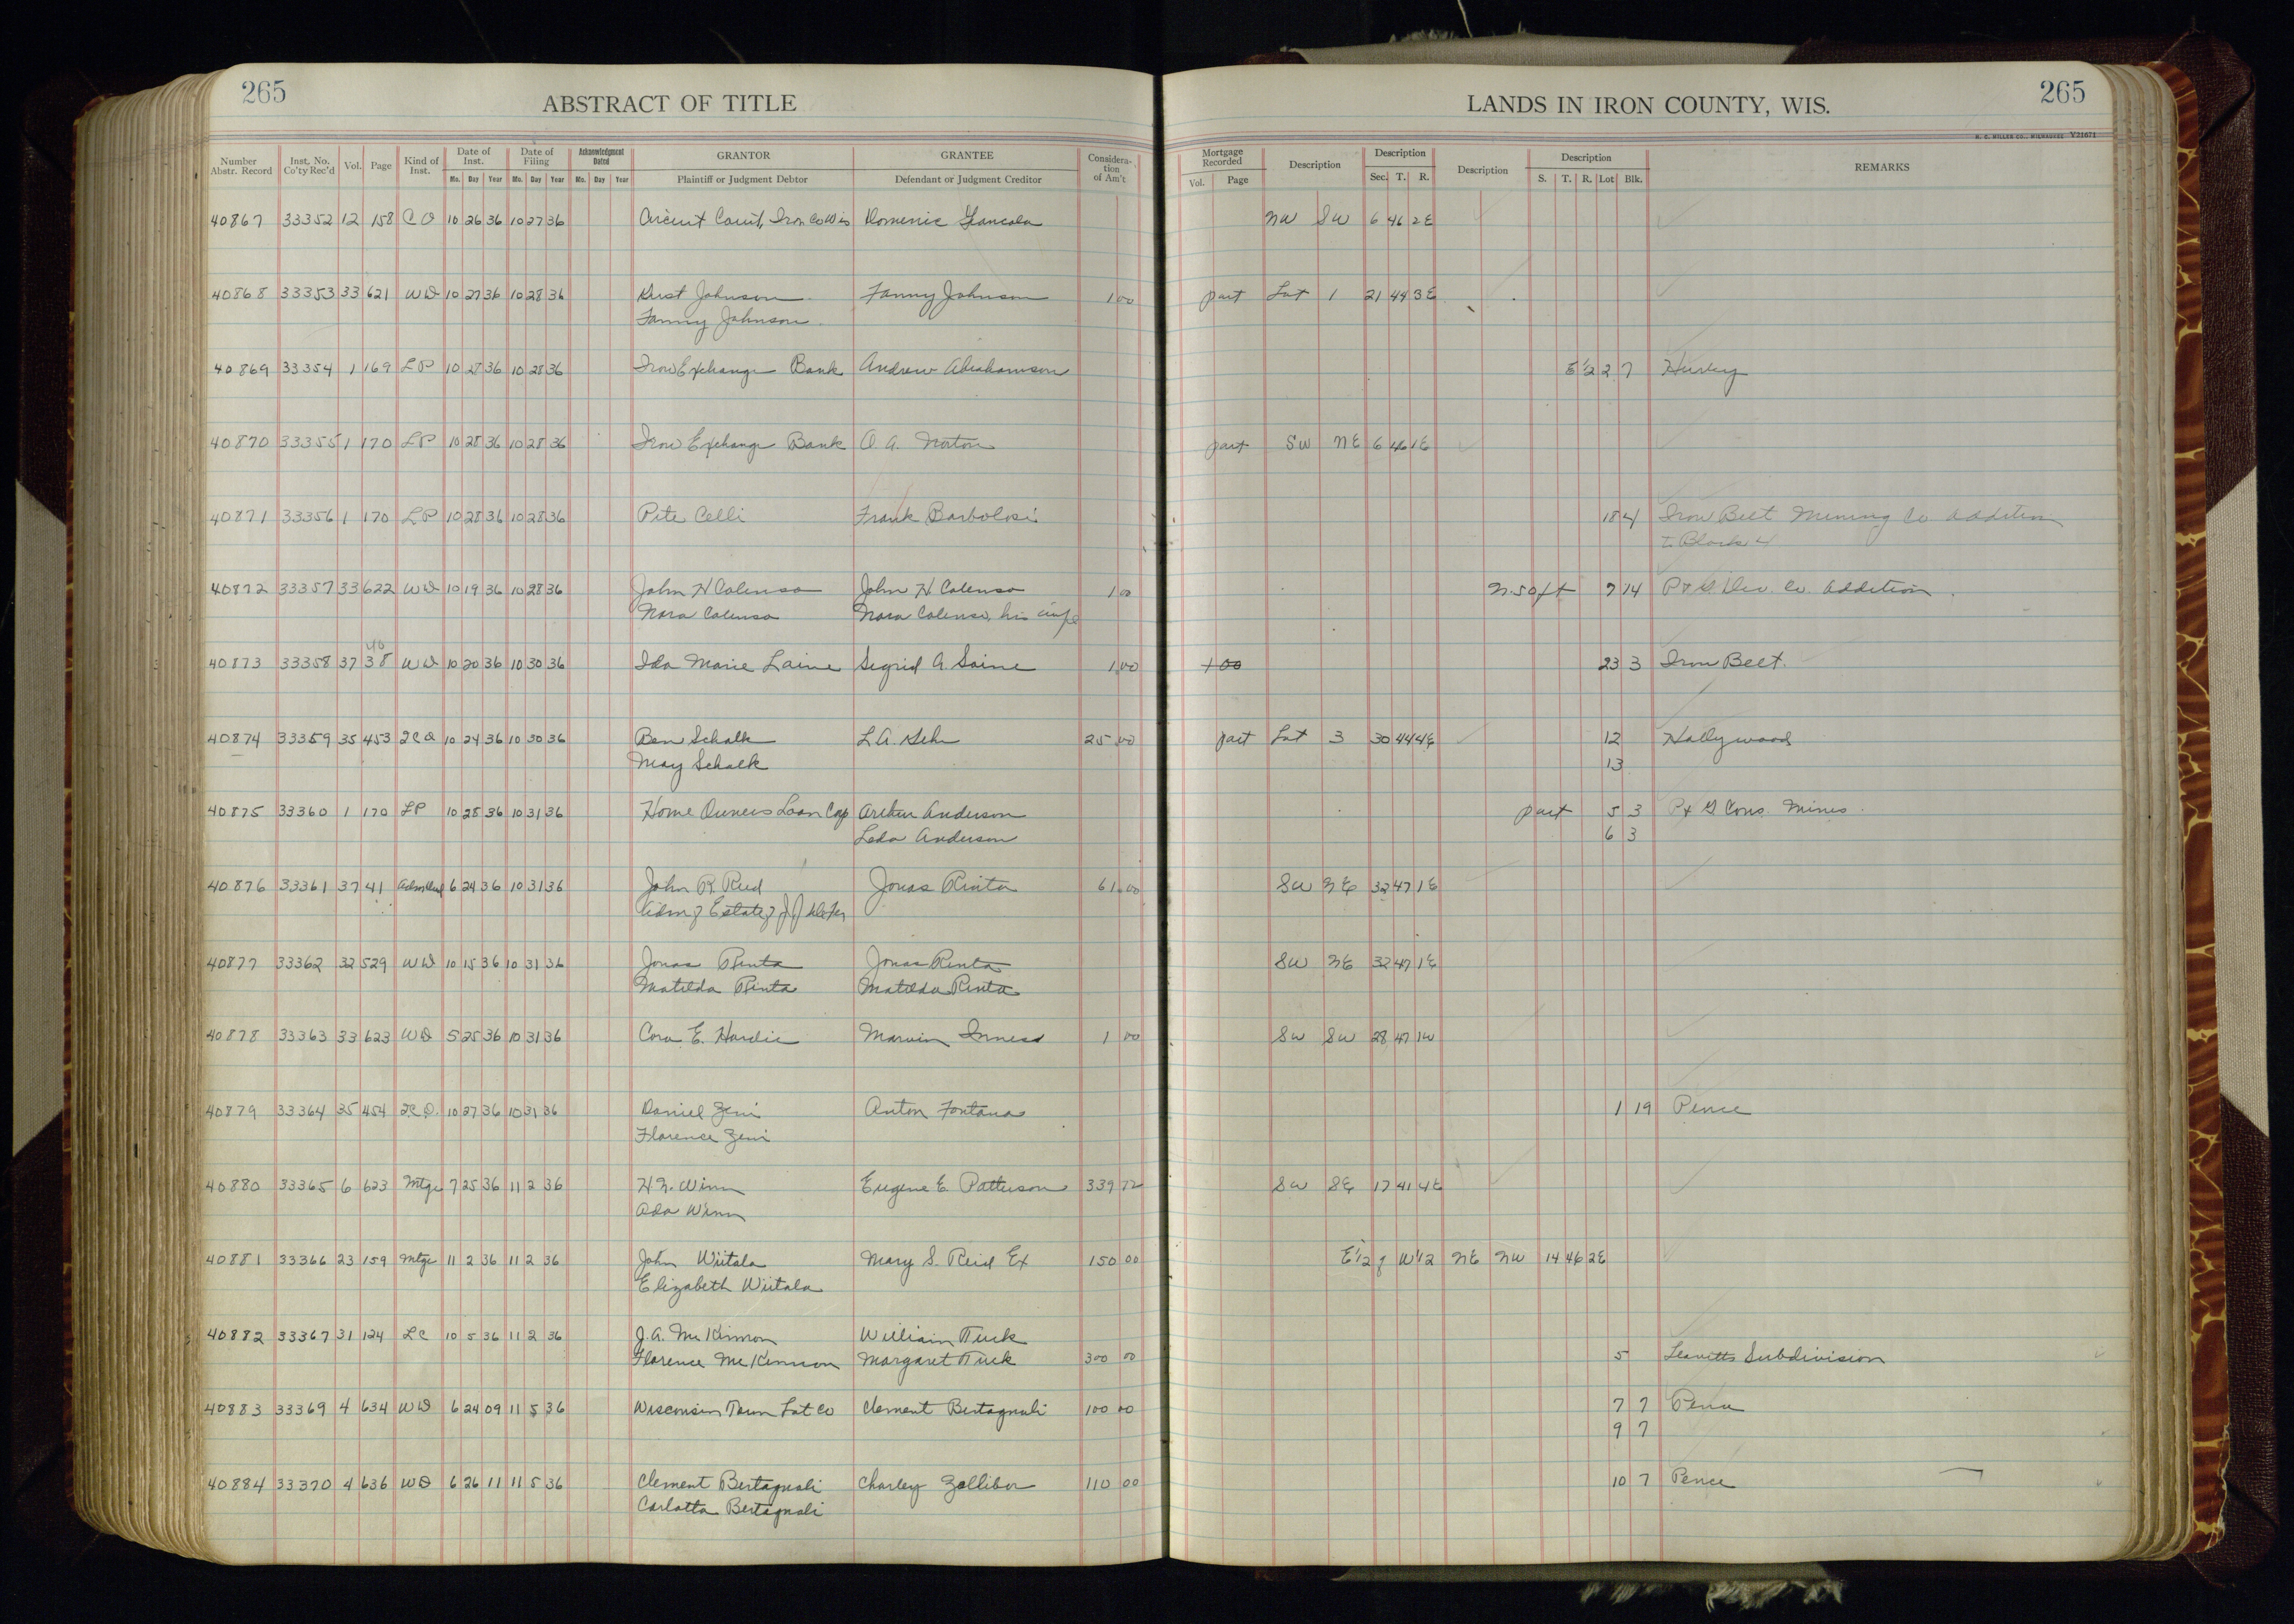 265
ABSTRACT OF TITLE
LANDS IN IRON COUNTY, WIS.
265
H. C. MILLER CO., MILWAUKEE V21671
Number Abstr. Record Inst. No. Co'ty Rec'd Vol. Page Kind of Inst. Date of Inst. Mo. Day Year Date of Filing Mo. Day Year Acknowledgment Dated Mo. Day Year GRANTOR Plaintiff or Judgment Debtor GRANTEE Defendant or Judgment Creditor Consideration of Am't Mortgage Recorded Vol. Page Description Description Sec. T. R. Description Description S. T. R. Lot Blk. REMARKS
40867 33352 12 158 C O 10 26 36 10 27 36 Circuit Court, Iron Co Wis Domenic NW SW 6 46 2E
40868 33353 33 621 WD 10 27 36 10 28 36 Krist Johnson Fanny Johnson 1 00 part Lot 1 21 44 3E
Fanny Johnson
40869 33354 1 169 LP 10 28 36 10 28 36 Iron Exchange Bank Andrew Abrahamson E 1/2 2 7 Hurley
40870 33355 1 170 LP 10 28 36 10 28 36 Iron Exchange Bank O. A. Norton part SW NE 6 46 1E
40871 33356 1 170 LP 10 28 36 10 28 36 Pite Celli Frank Barbolosi 18 4 Iron Belt Mining Co Addition
to Block 4
40872 33357 33 622 WD 10 19 36 10 28 36 John H Calenso John H Calenso 1 00 N. 50 ft 7 14 P & G Dev. Co. Addition
Nora Calenso Nora Calenso, his wife
40
40873 33358 37 38 WD 10 20 36 10 30 36 Ida Marie Laine Sigrid A. Saine 1 00 1 00 23 3 Iron Belt.
40874 33359 35 453 QCD 10 24 36 10 30 36 Ben Schalk L A. 25 00 part Lot 3 30 44 4E 12 Hollywood
May Schalk 13
40875 33360 1 170 LP 10 28 36 10 31 36 Home Owners Loan Corp Arthur Anderson part 5 3 P & G Cons. Mines
Leda Anderson 6 3
40876 33361 37 41 6 24 36 10 31 36 John R. Reid Jonas Rinta 61 00 SW NE 32 47 1E
Adm of Estate of J J
40877 33362 32 529 WD 10 15 36 10 31 36 Jonas Rinta Jonas Rinta SW NE 32 47 1E
Matilda Rinta Matilda Rinta
40878 33363 33 623 WD 5 25 36 10 31 36 Cora E. Hardie Marvin Inness 1 00 SW SW 28 47 1W
40879 33364 35 454 QCD. 10 27 36 10 31 36 Daniel Zeni Anton Fontana 1 19 Pence
Florence Zeni
40880 33365 6 623 Mtge 7 25 36 11 2 36 Winn Eugene E. Patterson 339 72 SW SE 17 41 4E
Ada Winn
40881 33366 23 159 Mtge 11 2 36 11 2 36 John Wiitala Mary S. Reid Ex 150 00 E 1/2 of W 1/2 NE NW 14 46 2E
Elizabeth Wiitala
40882 33367 31 124 LC 10 5 36 11 2 36 J. A. McKinnon William Tuck
Florence McKinnon Margaret Tuck 300 00 5 Leavitts Subdivision
40883 33369 4 634 WD 6 24 09 11 5 36 Wisconsin Town Lot Co Clement Bertagnoli 100 00 7 7 Pence
9 7
40884 33370 4 636 WD 6 26 11 11 5 36 Clement Bertagnoli Charley Zallibor 110 00 10 7 Pence
Carlotta Bertagnoli